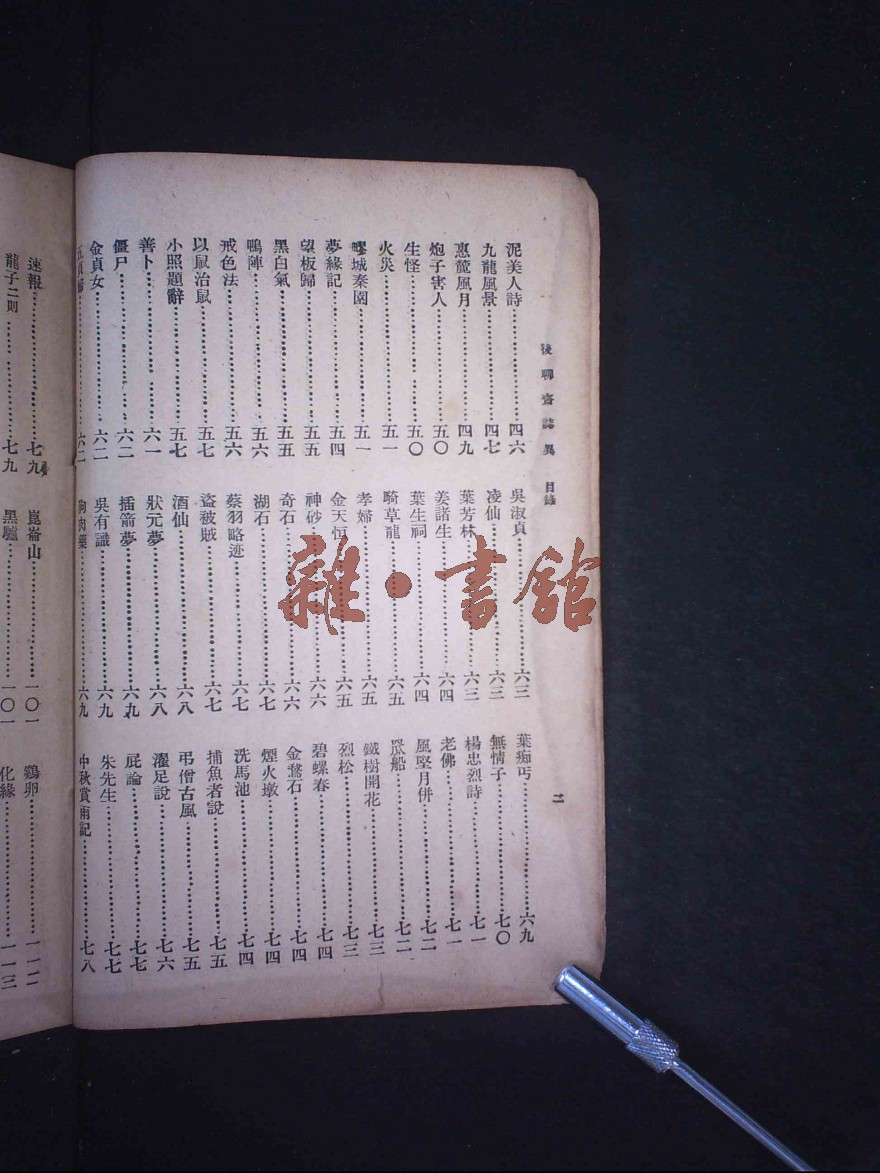 後聊齋誌異 目錄
二
泥美人詩 四六
九龍風景 四七
惠麓風月 四九
炮子害人 五〇
生怪 五〇
火災 五一
疁城秦園 五一
夢緣記 五四
望板歸 五五
黑白氣 五五
鴨陣 五六
戒色法 五六
以鼠治鼠 五七
小照題辭 五七
善卜 六一
僵尸 六二
金貞女 六二
六二
吳淑貞 六三
凌仙 六三
葉芳林 六三
姜諸生 六四
葉生祠 六四
騎草龍 六五
孝婦 六五
金天恒 六五
神砂 六六
奇石 六六
湖石 六七
蔡羽略迹 六七
盜被賊 六七
酒仙 六八
狀元夢 六八
插箭夢 六九
吳有識 六九
肉藥 六九
葉痴丐 六九
無情子 七〇
楊忠烈詩 七一
老佛 七一
風堅月併 七二
罛船 七二
鐵樹開花 七三
烈松 七三
碧螺春 七四
金鶖石 七四
煙火墩 七四
洗馬池 七四
捕魚者說 七五
弔僧古風 七五
濯足說 七六
屁論 七七
朱先生 七七
中秋賞雨記 七八
速報 七九
龍子二則 七九
崑崙山 一〇一
黑驢 一〇一
鷄卵 一一二
化緣 一一三
雜·書館